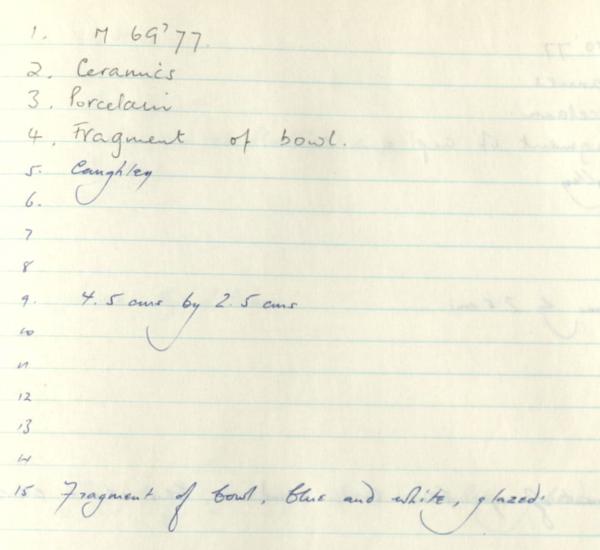 1. M 69'77.
2. Ceramics
3. Porcelain
4. Fragment of bowl.
5. Caughley
6.
7
8
9. 4.5 cms by 2.5 cms
10
11
12
13
14
15 Fragment of bowl, blue and white, glazed.